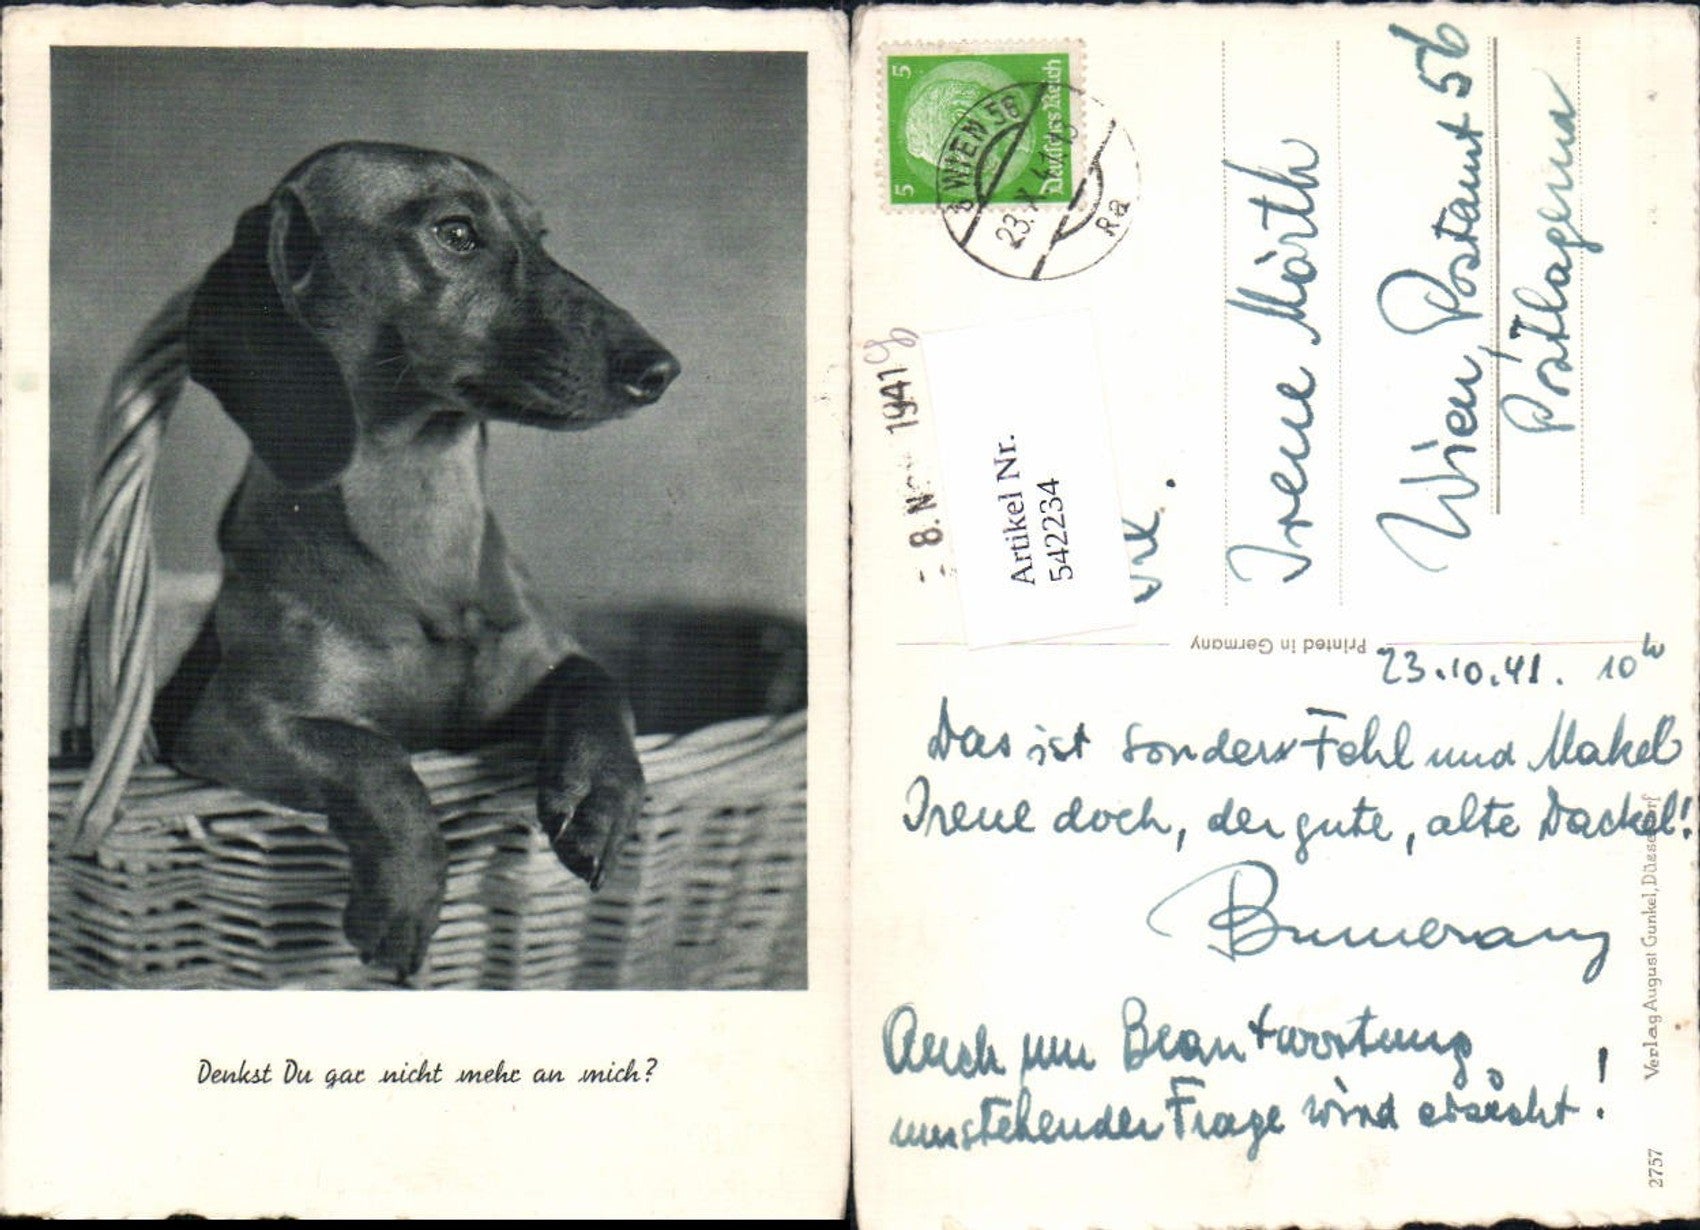 Denkst Du gar nicht mehr an mich?
5
5
Deutsches Reich
WIEN 56
23.
Ra
8. N 1941
Artikel Nr.
542234
Irene Mörth
Wien, Postamt 56
Postlagernd
Printed in Germany
23.10.41. 10h
Das ist sonder Fehl und Makel
Irene doch, der gute, alte Dackel!
Bumerang
Auch um Beantwortung
umstehender Frage wird ersucht!
Verlag August Gunkel, Düsseldorf
2757